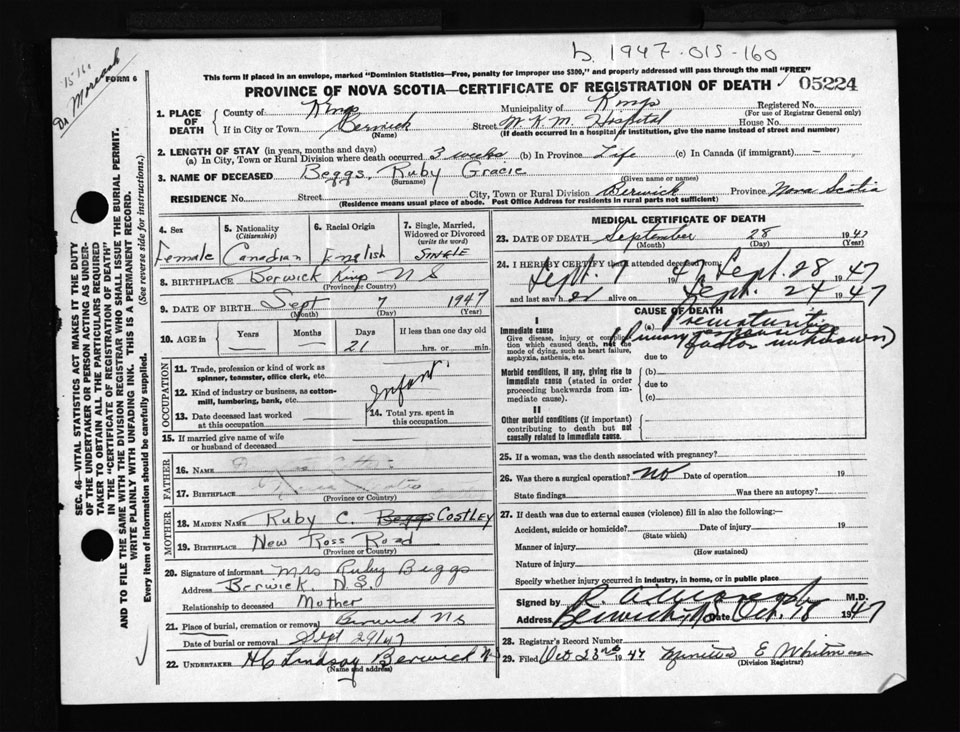 b. 1947-015-160
15-16
Dr Moreash
FORM 6
This form if placed in an envelope, marked "Dominion Statistics—Free, penalty for improper use $300," and properly addressed will pass through the mail "FREE"
PROVINCE OF NOVA SCOTIA—CERTIFICATE OF REGISTRATION OF DEATH 05224
1. PLACE OF DEATH County of Kings Municipality of Kings Registered No.
(For use of Registrar General only)
If in City or Town Berwick Street W.K.M. Hospital House No.
(Name) (If death occurred in a hospital or institution, give the name instead of street and number)
2. LENGTH OF STAY (in years, months and days)
(a) In City, Town or Rural Division where death occurred 3 weeks (b) In Province Life (c) In Canada (if immigrant) —
3. NAME OF DECEASED Beggs, Ruby Gracie
(Surname) (Given name or names)
RESIDENCE No. Street City, Town or Rural Division Berwick Province Nova Scotia
(Residence means usual place of abode. Post Office Address for residents in rural parts not sufficient)
4. Sex 5. Nationality (Citizenship) 6. Racial Origin 7. Single, Married, Widowed or Divorced (write the word)
Female Canadian English SINGLE
8. BIRTHPLACE Berwick Kings N S
(Province or Country)
9. DATE OF BIRTH Sept 7 1947
(Month) (Day) (Year)
10. AGE in Years Months Days If less than one day old
— — 21 hrs. or min.
OCCUPATION
11. Trade, profession or kind of work as spinner, teamster, office clerk, etc.
12. Kind of industry or business, as cotton-mill, lumbering, bank, etc.
Infant
13. Date deceased last worked at this occupation
14. Total yrs. spent in this occupation
15. If married give name of wife or husband of deceased
FATHER
16. NAME
17. BIRTHPLACE
(Province or Country)
MOTHER
18. MAIDEN NAME Ruby C. Beggs COSTLEY
19. BIRTHPLACE New Ross Road
(Province or Country)
20. Signature of informant Mrs Ruby Beggs
Address Berwick, N.S.
Relationship to deceased Mother
21. Place of burial, cremation or removal Berwick N S
Date of burial or removal Sept 29/47
22. UNDERTAKER H C Lindsay Berwick N S
(Name and address)
MEDICAL CERTIFICATE OF DEATH
23. DATE OF DEATH September 28 1947
(Month) (Day) (Year)
24. I HEREBY CERTIFY that I attended deceased from
Sept. 7 1947 Sept. 28 1947
and last saw her alive on Sept. 24 1947
CAUSE OF DEATH
I
Immediate cause (a) Prematurity
Give disease, injury or complication which caused death, not the mode of dying, such as heart failure, asphyxia, asthenia, etc.
factor unknown)
due to
Morbid conditions, if any, giving rise to immediate cause (stated in order proceeding backwards from immediate cause).
(b)
due to
(c)
II
Other morbid conditions (if important) contributing to death but not causally related to immediate cause.
25. If a woman, was the death associated with pregnancy?
26. Was there a surgical operation? no Date of operation 19
State findings Was there an autopsy?
27. If death was due to external causes (violence) fill in also the following:—
Accident, suicide or homicide? Date of injury 19
(State which)
Manner of injury
(How sustained)
Nature of injury
Specify whether injury occurred in industry, in home, or in public place
Signed by M.D.
Address Berwick, N.S. Date Oct. 18 1947
28. Registrar's Record Number
29. Filed Oct 23rd 1947 E Whitman
(Division Registrar)
SEC. 46—VITAL STATISTICS ACT MAKES IT THE DUTY
OF THE UNDERTAKER OR PERSON ACTING AS UNDERTAKER
TO OBTAIN ALL THE PARTICULARS REQUIRED
IN THE "CERTIFICATE OF REGISTRATION OF DEATH"
AND TO FILE THE SAME WITH THE DIVISION REGISTRAR WHO SHALL ISSUE THE BURIAL PERMIT.
WRITE PLAINLY WITH UNFADING INK. THIS IS A PERMANENT RECORD.
Every item of Information should be carefully supplied. (See reverse side for instructions.)